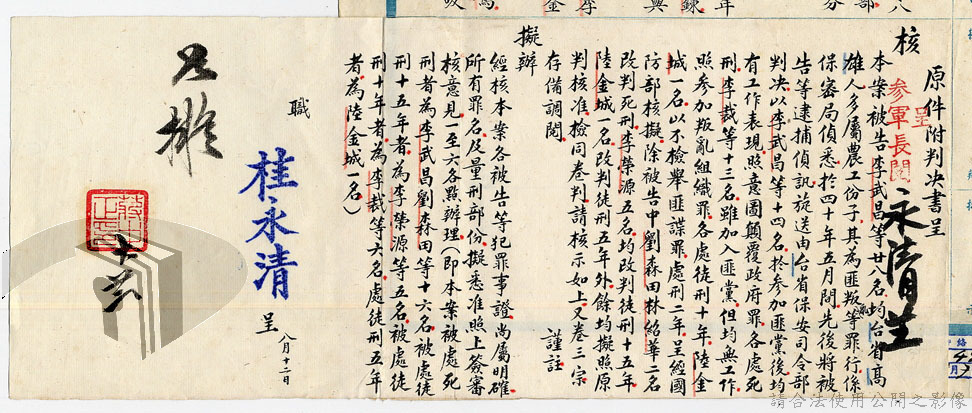 原件附判決書呈
呈
參軍長閱
永清呈
核
本案被告李武昌等廿八名均台省高
雄人多屬農工份子其為匪叛等罪行係
保密局偵悉於四十年五月間先後將被
告等逮捕偵訊旋送由台省保安司令部
判決以李武昌等十四名於參加匪黨後均
有工作表現照意圖顛覆政府罪各處死
刑李裁等十三名雖加入匪黨但均無工作
照參加叛亂組織罪各處徒刑十年陸金
城一名以不檢舉匪諜罪處刑二年呈經國
防部核擬除被告中劉森田林紹華二名
改判死刑李榮源五名均改判徒刑十五年
陸金城一名改判徒刑五年外餘均擬照原
判核准檢同卷判請核示如上又卷三宗
存備調閱 謹註
擬辦
經核本案各被告等犯罪事證尚屬明確
所有罪名及量刑部份擬悉准照上簽審
核意見一至六各點辦理(即本案被處死
刑者為李武昌劉森田等十六名被處徒
刑十五年者為李榮源等五名被處徒
刑十年者為李裁等六名處徒刑五年
者為陸金城一名)
職
桂永清
呈
八月十二日
如擬
蔣中正印
請合法使用公開之影像